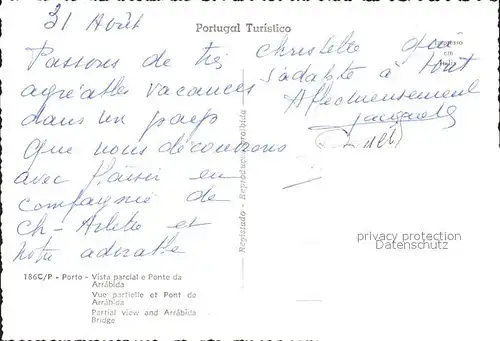 31 Août
Portugal Turístico
Passons de très
agréables vacances
dans un pays
que nous découvrons
avec plaisir en
compagnie de
Ch-Arlette et
notre adorable
Christelle qui
s'adapte à tout
Affectueusement
Registado - Reproduçao Proibida
privacy protection
Datenschutz
186C/P - Porto - Vista parcial e Ponte da
Arrábida
Vue partielle et Pont de
Arrábida
Partial view and Arrábida
Bridge